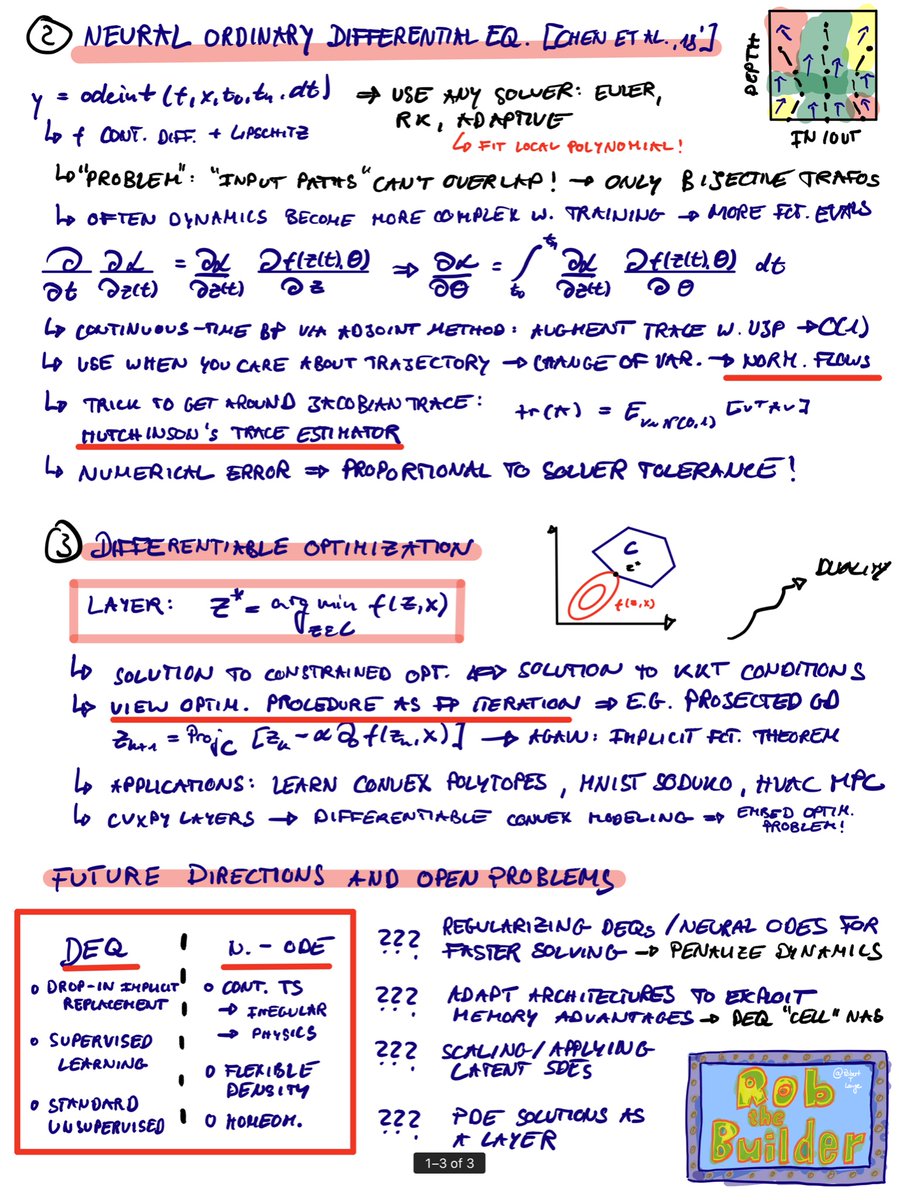 ② NEURAL ORDINARY DIFFERENTIAL EQ. [CHEN ET AL., 18']
DEPTH
IN/OUT
y = odeint(f, x, t₀, t₁, dt) ⇒ USE ANY SOLVER: EULER,
RK, ADAPTIVE
↳ f CONT. DIFF. + LIPSCHITZ
↳ FIT LOCAL POLYNOMIAL!
↳ "PROBLEM": "INPUT PATHS" CAN'T OVERLAP! → ONLY BIJECTIVE TRAFOS
↳ OFTEN DYNAMICS BECOME MORE COMPLEX W. TRAINING → MORE FCT. EVALS
∂/∂t ∂L/∂z(t) = ∂L/∂z(t) ∂f(z(t),θ)/∂z ⇒ ∂L/∂θ = ∫_{t₀}^{t₁} ∂L/∂z(t) ∂f(z(t),θ)/∂θ dt
↳ CONTINUOUS-TIME BP VIA ADJOINT METHOD: AUGMENT TRACE W. VJP → O(1)
↳ USE WHEN YOU CARE ABOUT TRAJECTORY → CHANGE OF VAR. → NORM. FLOWS
↳ TRICK TO GET AROUND JACOBIAN TRACE: tr(A) = E_{v~N(0,1)} [vᵀAv]
HUTCHINSON'S TRACE ESTIMATOR
↳ NUMERICAL ERROR ⇒ PROPORTIONAL TO SOLVER TOLERANCE!
③ DIFFERENTIABLE OPTIMIZATION
C
z*
f(z,x)
DUALITY
LAYER: z* = arg min f(z,x)
z∈C
↳ SOLUTION TO CONSTRAINED OPT. ⇔ SOLUTION TO KKT CONDITIONS
↳ VIEW OPTIM. PROCEDURE AS FP ITERATION ⇒ E.G. PROJECTED GD
z_{k+1} = Proj_C [z_k - α ∂ f(z_k, x)] → AGAIN: IMPLICIT FCT. THEOREM
↳ APPLICATIONS: LEARN CONVEX POLYTOPES, MNIST SODUKO, HVAC MPC
↳ CVXPY LAYERS → DIFFERENTIABLE CONVEX MODELING ⇒ EMBED OPTIM.
PROBLEM!
FUTURE DIRECTIONS AND OPEN PROBLEMS
DEQ
○ DROP-IN IMPLICIT
REPLACEMENT
○ SUPERVISED
LEARNING
○ STANDARD
UNSUPERVISED
N.-ODE
○ CONT. TS
→ IRREGULAR
→ PHYSICS
○ FLEXIBLE
DENSITY
○ HOMEOM.
??? REGULARIZING DEQs/NEURAL ODES FOR
FASTER SOLVING → PENALIZE DYNAMICS
??? ADAPT ARCHITECTURES TO EXPLOIT
MEMORY ADVANTAGES → DEQ "CELL" NAS
??? SCALING/APPLYING
LATENT SDEs
??? PDE SOLUTIONS AS
A LAYER
@Robert
Lange
Rob
the
Builder
1–3 of 3